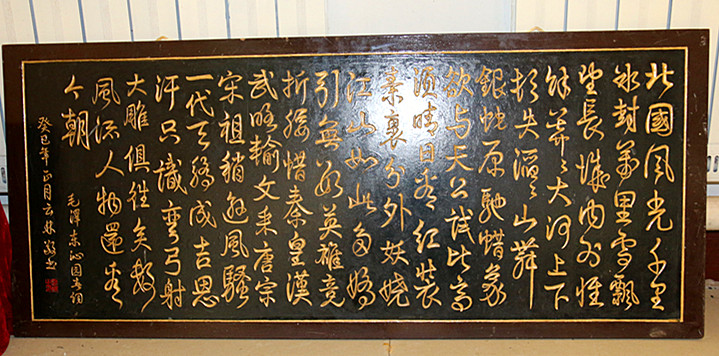 北國风光千里
冰封萬里雪飄
望長城内外惟
餘莽〻大河上下
頓失滔〻山舞
銀蛇原馳蜡象
欲与天公試比高
須晴日看红裝
素裹分外妖嬈
江山如此多嬌
引無數英雄竞
折腰惜秦皇漢
武略輸文采唐宗
宋祖稍遜風騷
一代天驕成吉思
汗只識彎弓射
大雕俱往矣數
風流人物還看
今朝
毛澤東沁園春詞
癸巳年正月云林